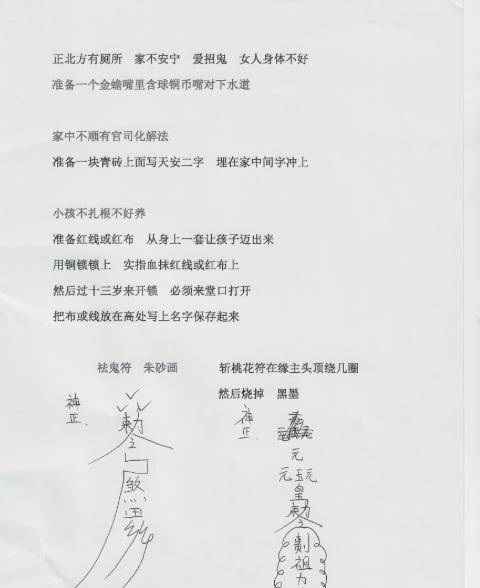 正北方有厕所 家不安宁 爱招鬼 女人身体不好
准备一个金蟾嘴里含球铜币嘴对下水道
家中不顺有官司化解法
准备一块青砖上面写天安二字 埋在家中间字冲上
小孩不扎根不好养
准备红线或红布 从身上一套让孩子迈出来
用铜锁锁上 实指血抹红线或红布上
然后过十三岁来开锁 必须来堂口打开
把布或线放在高处写上名字保存起来
祛鬼符 朱砂画
斩桃花符在缘主头顶绕几圈
然后烧掉 黑墨
神正
敕
之
煞
神正
元
元玉元
皇
敕
之
祖
力